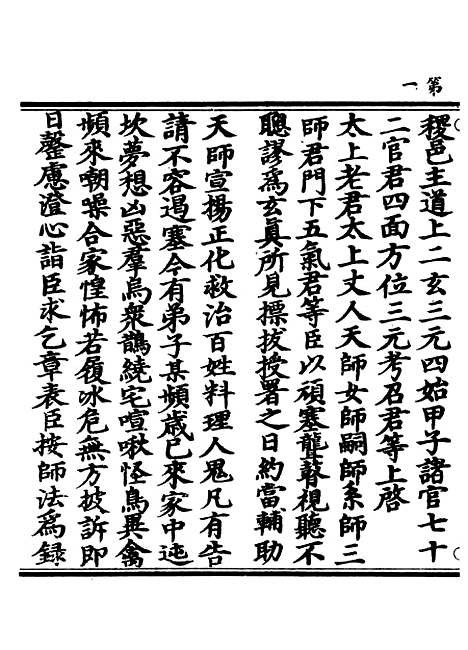 第一
稷邑主道上二玄三元四始甲子諸官七十
二官君四面方位三元考召君等上啓
太上老君太上丈人天師女師嗣師系師三
師君門下五氣君等臣以頑塞聾瞽視聽不
聰謬爲玄眞所見摽拔授署之日約當輔助
天師宣揚正化救治百姓料理人鬼凡有告
請不容遏塞今有弟子某頻歲已來家中迍
坎夢想凶惡羣烏衆鵲繞宅喧啾怪鳥異禽
頻來嘲噪合家惶怖若履冰危無方披訴即
日罄慮澄心詣臣求乞章表臣按師法爲錄